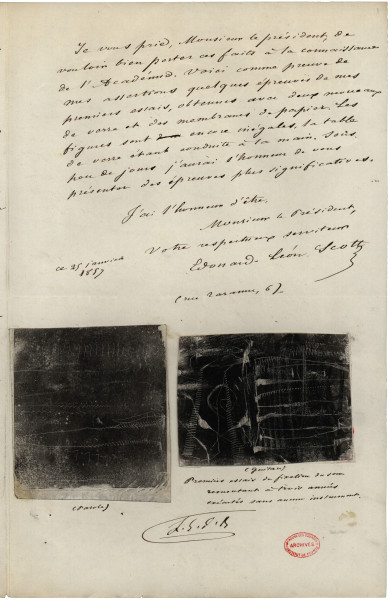 Je vous prie, Monsieur le président, de
vouloir bien porter ces faits à la connaissance
de l'Académie. Voici comme preuve de
mes assertions quelques épreuves de mes
premiers essais, obtenues avec deux morceaux
de verre et des membranes de papier. Les
figures sont encore inégales, la table
de verre étant conduite à la main. Sous
peu de jours j'aurai l'honneur de vous
présenter des épreuves plus significatives.
J'ai l'honneur d'être,
Monsieur le Président,
Votre respectueux serviteur
Edouard-Léon Scott
ce 25 janvier
1857
(rue Taranne, 6).
(Parole)
(Guitare)
Premiers essais de fixation du son
remontant à trois années
exécutés sans aucun instrument.
L. S.
ARCHIVES